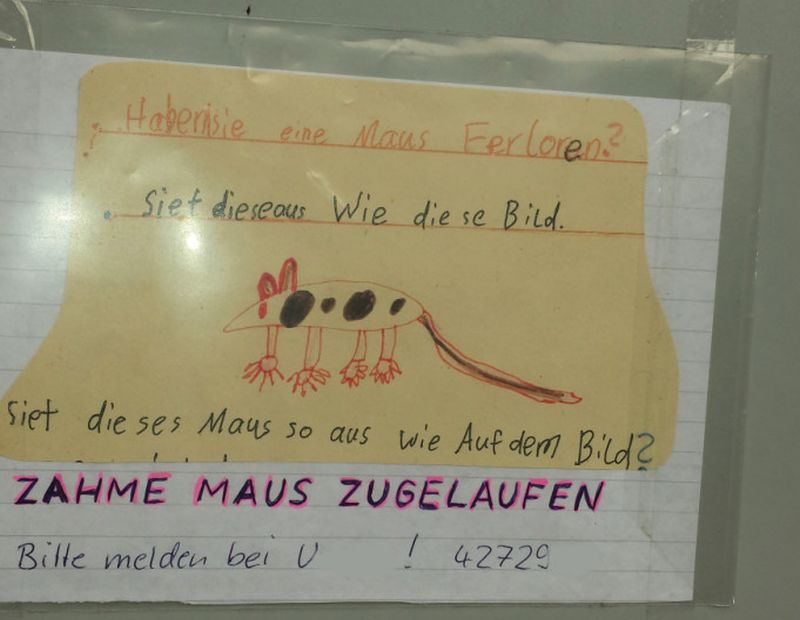 Habensie eine Maus Ferloren?
Siet dieseaus Wie diese Bild.
Siet dieses Maus so aus wie Auf dem Bild?
ZAHME MAUS ZUGELAUFEN
Bitte melden bei U ! 42729